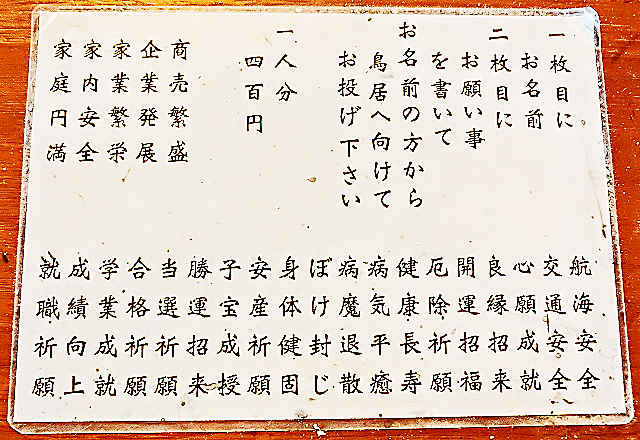 一枚目に
お名前
二枚目に
お願い事
を書いて
お名前の方から
鳥居へ向けて
お投げ下さい
一人分
四百円
商売繁盛
企業発展
家業繁栄
家内安全
家庭円満
航海安全
交通安全
心願成就
良縁招来
開運招福
厄除祈願
健康長寿
病気平癒
病魔退散
ぼけ封じ
身体健固
安産祈願
子宝成授
勝運招来
当選祈願
合格祈願
学業成就
成績向上
就職祈願